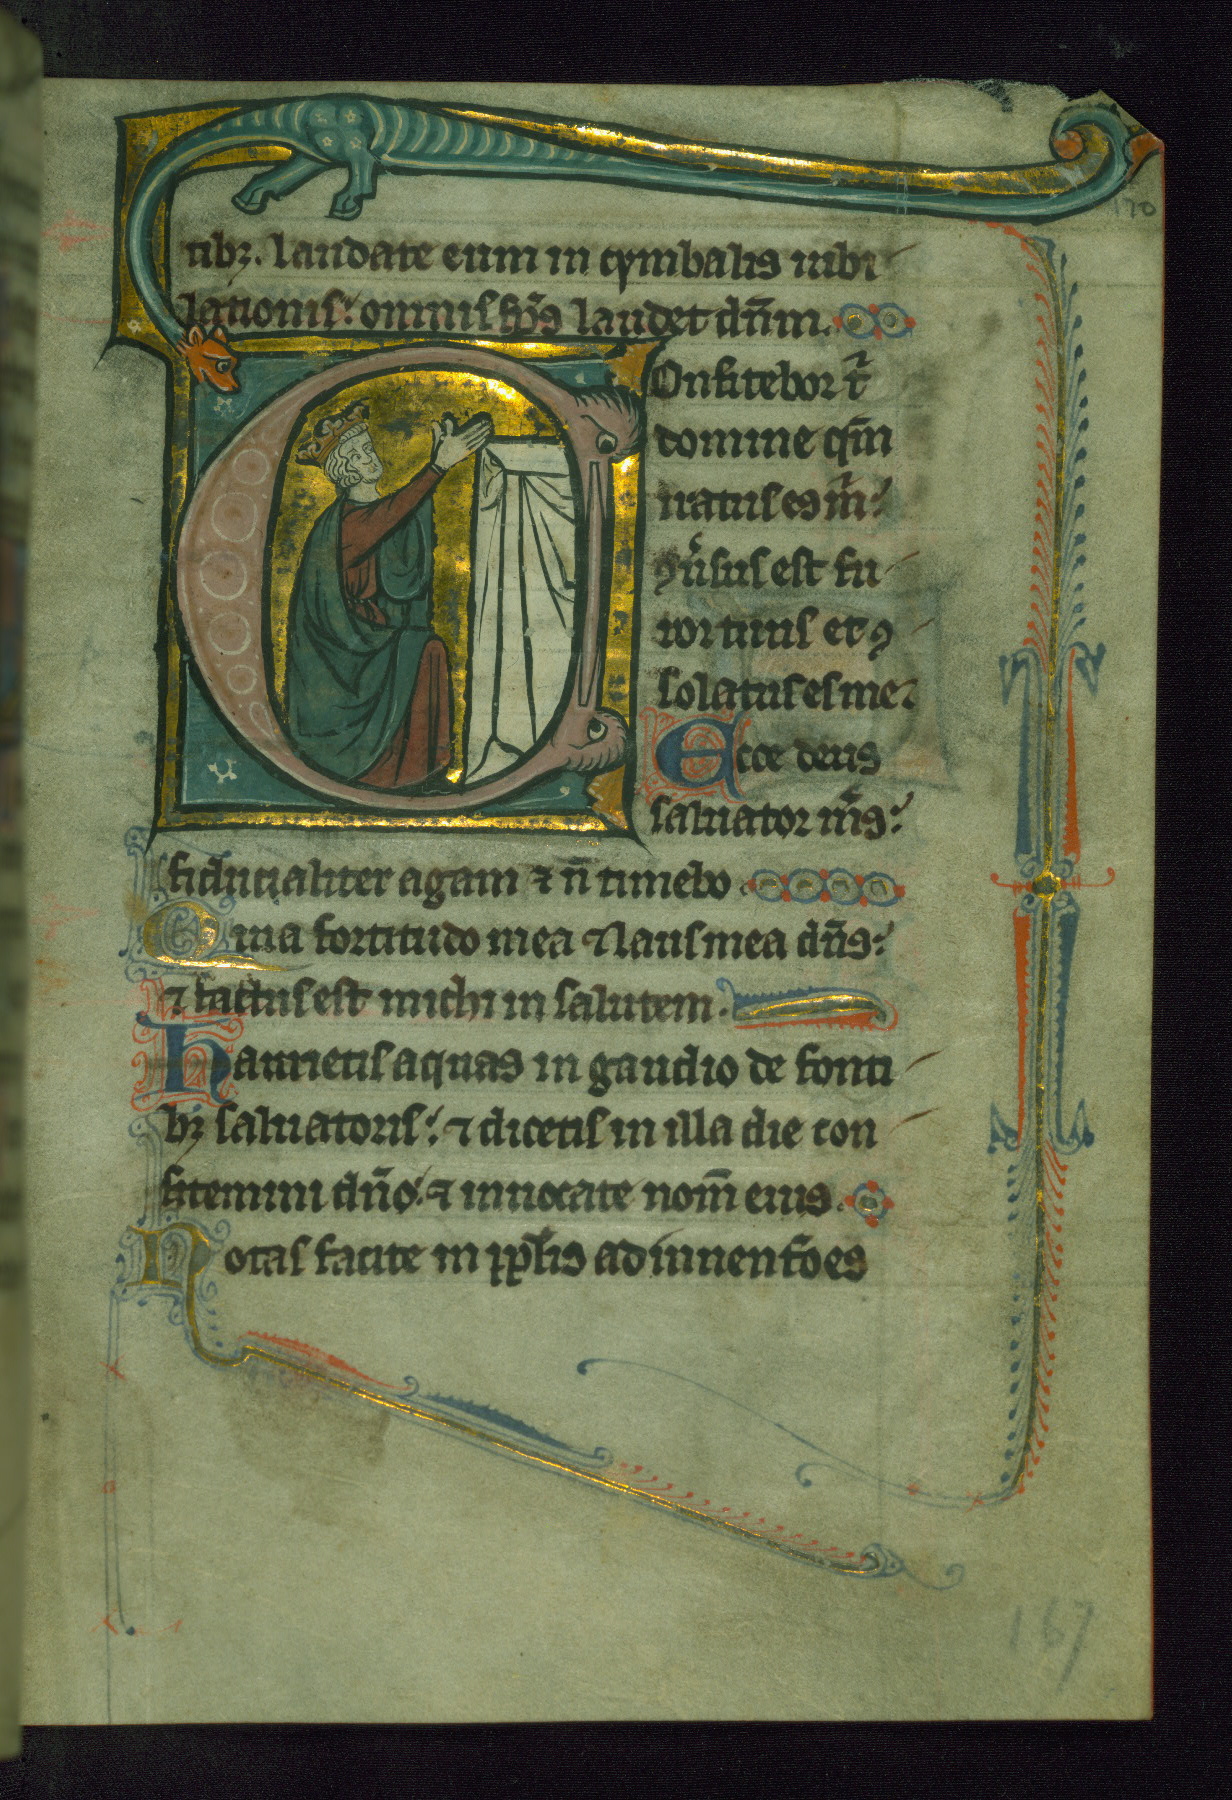 170
tibꝫ. laudate eum in cymbalis iubi
lationis: omnis sp̄s laudet dn̄m.
Confitebor t̄
domine qm̄
iratus es m̄:
ꝯuͥsus est fu
ror tuus et ꝯ
solatus es me.
Ecce deus
saluator mͥs:
fiducialiter agam ⁊ n̄ timebo
Quia fortitudo mea ⁊ laus mea dn̄s:
⁊ factus est michi in salutem.
Haurietis aquas in gaudio de fonti
bꝫ saluatoris: ⁊ dicetis in illa die con
fitemini dn̄o: ⁊ inuocate nom̄ eius.
Notas facite in pp̄lis adinuent̄oes
167